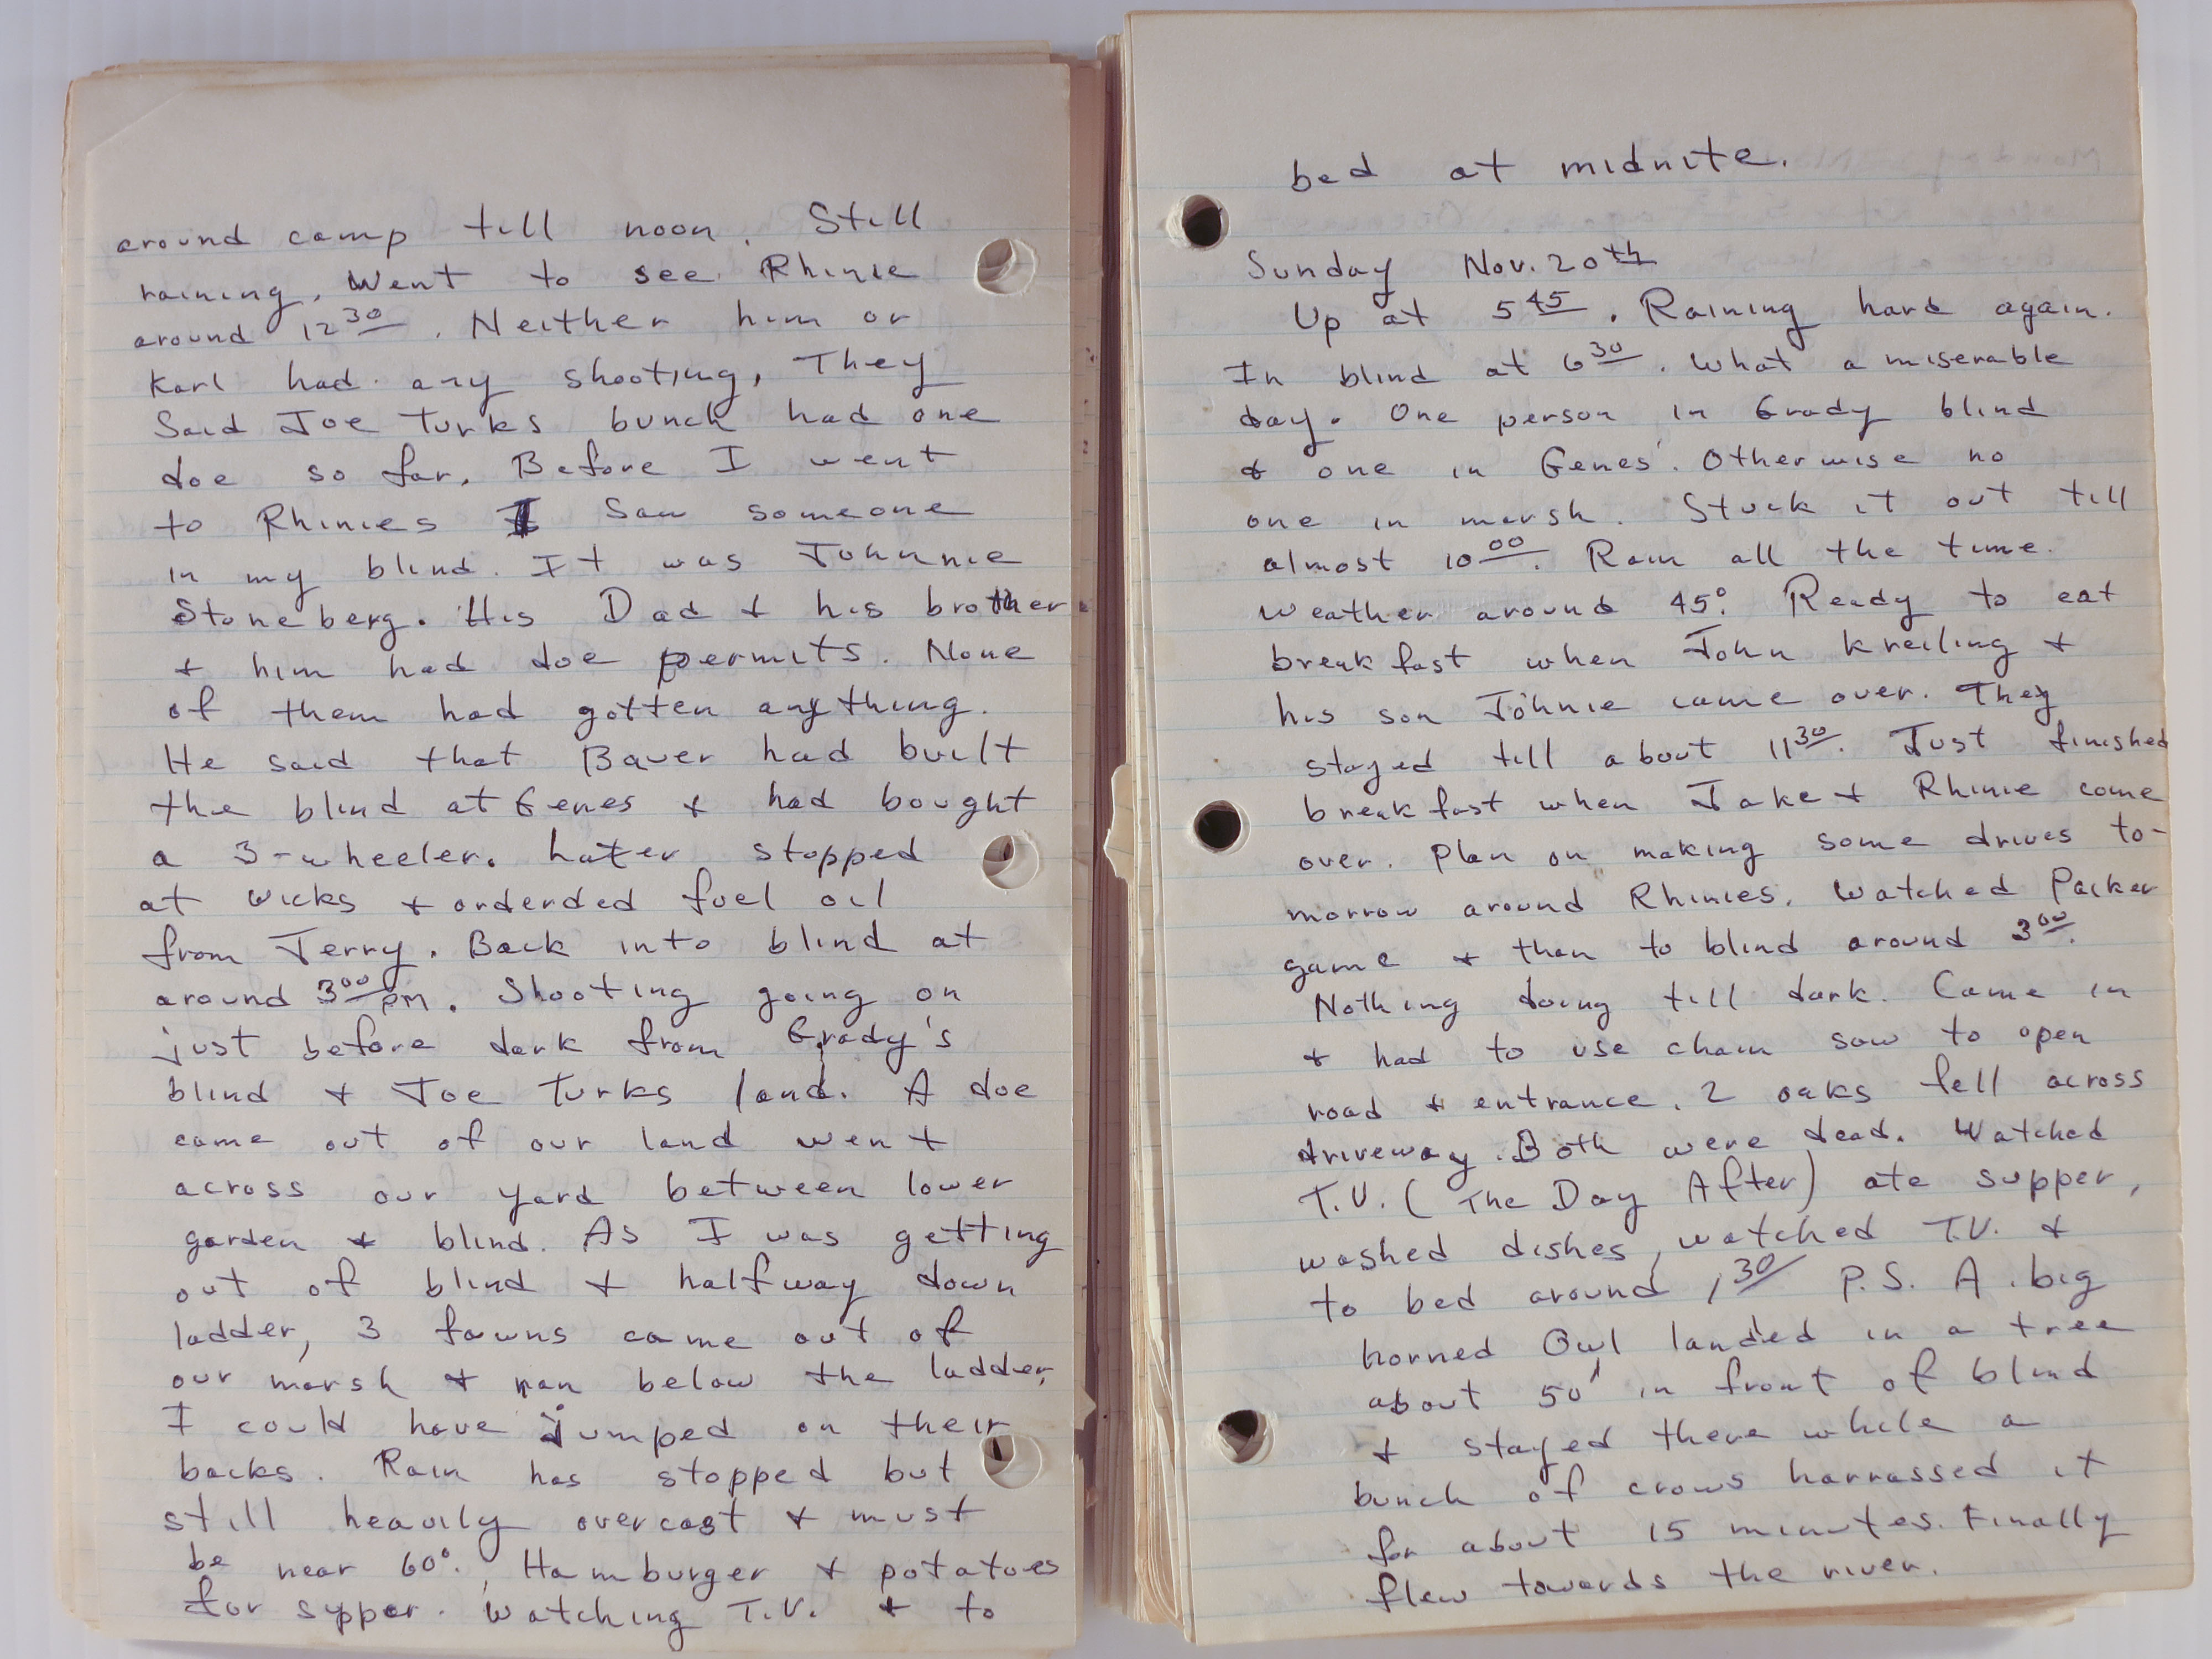 around camp till noon. Still
raining. Went to see Rhinie
around 12 30. Neither him or
Karl had any shooting, They
Said Joe Turks bunch had one
doe so far. Before I went
to Rhinies I saw someone
in my blind. It was Johnnie
Stoneberg. His Dad & his brother
& him had doe permits. None
of them had gotten anything.
He said that Bauer had built
the blind at Genes & had bought
a 3-wheeler. Later stopped
at Wicks & orderded fuel oil
from Jerry. Back into blind at
around 3 00 PM. Shooting going on
just before dark from Grady's
blind & Joe Turks land. A doe
came out of our land went
across our yard between lower
garden & blind. As I was getting
out of blind & halfway down
ladder, 3 fawns came out of
our marsh & ran below the ladder,
I could have jumped on their
backs. Rain has stopped but
still heavily overcast & must
be near 60°. Hamburger & potatoes
for supper. Watching T.V. & to
bed at midnite.
Sunday Nov. 20th
Up at 5 45. Raining hard again.
In blind at 6 30. What a miserable
day. One person in Grady blind
& one in Genes'. Otherwise no
one in marsh. Stuck it out till
almost 10 00. Rain all the time.
Weather around 45°. Ready to eat
breakfast when John Kreiling &
his son Johnie came over. They
stayed till about 11 30. Just finished
breakfast when Jake & Rhinie come
over. Plan on making some drives to-
morrow around Rhinies. Watched Packer
game & then to blind around 3 00.
Nothing doing till dark. Came in
& had to use chain saw to open
road & entrance. 2 oaks fell across
driveway. Both were dead. Watched
T.V. (The Day After) ate supper,
washed dishes, watched T.V. &
to bed around 1 30 P.S. A big
horned Owl landed in a tree
about 50' in front of blind
& stayed there while a
bunch of crows harrassed it
for about 15 minutes. Finally
flew towards the river.